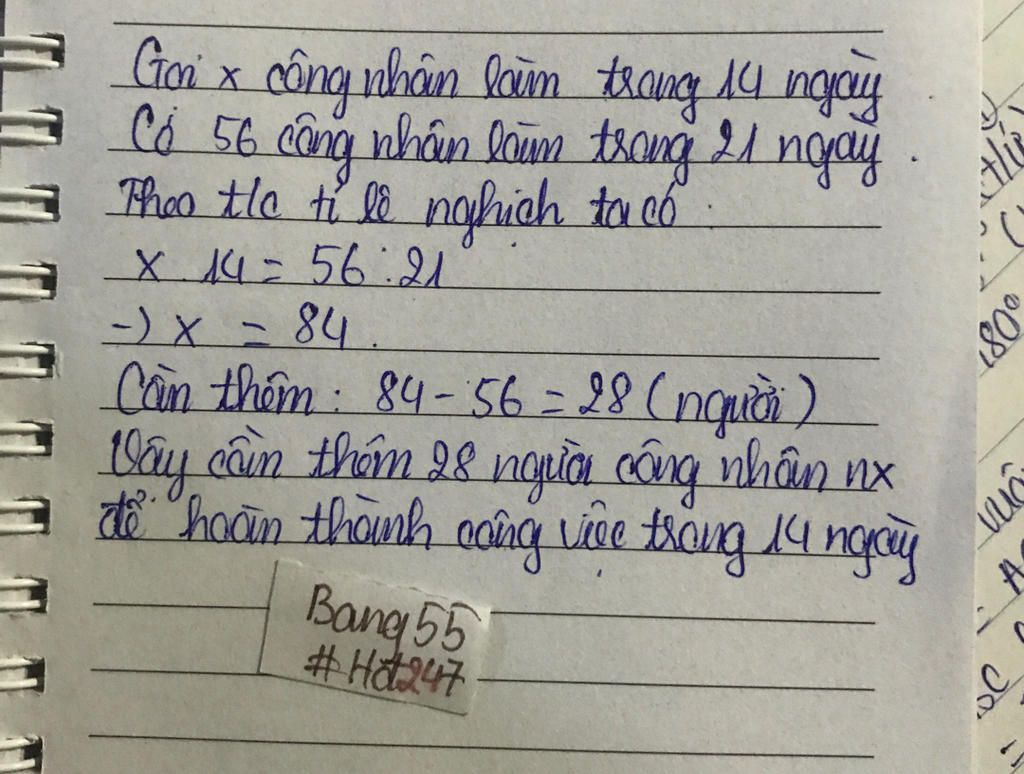 Gọi x công nhân làm trong 14 ngày
Có 56 công nhân làm trong 21 ngày.
Theo t/c tỉ lệ nghịch ta có
x 14 = 56 . 21
-) x = 84.
Cần thêm : 84 - 56 = 28 (người)
Vậy cần thêm 28 người công nhân nx
để hoàn thành công việc trong 14 ngày
Bang55
#Hđ247
180°